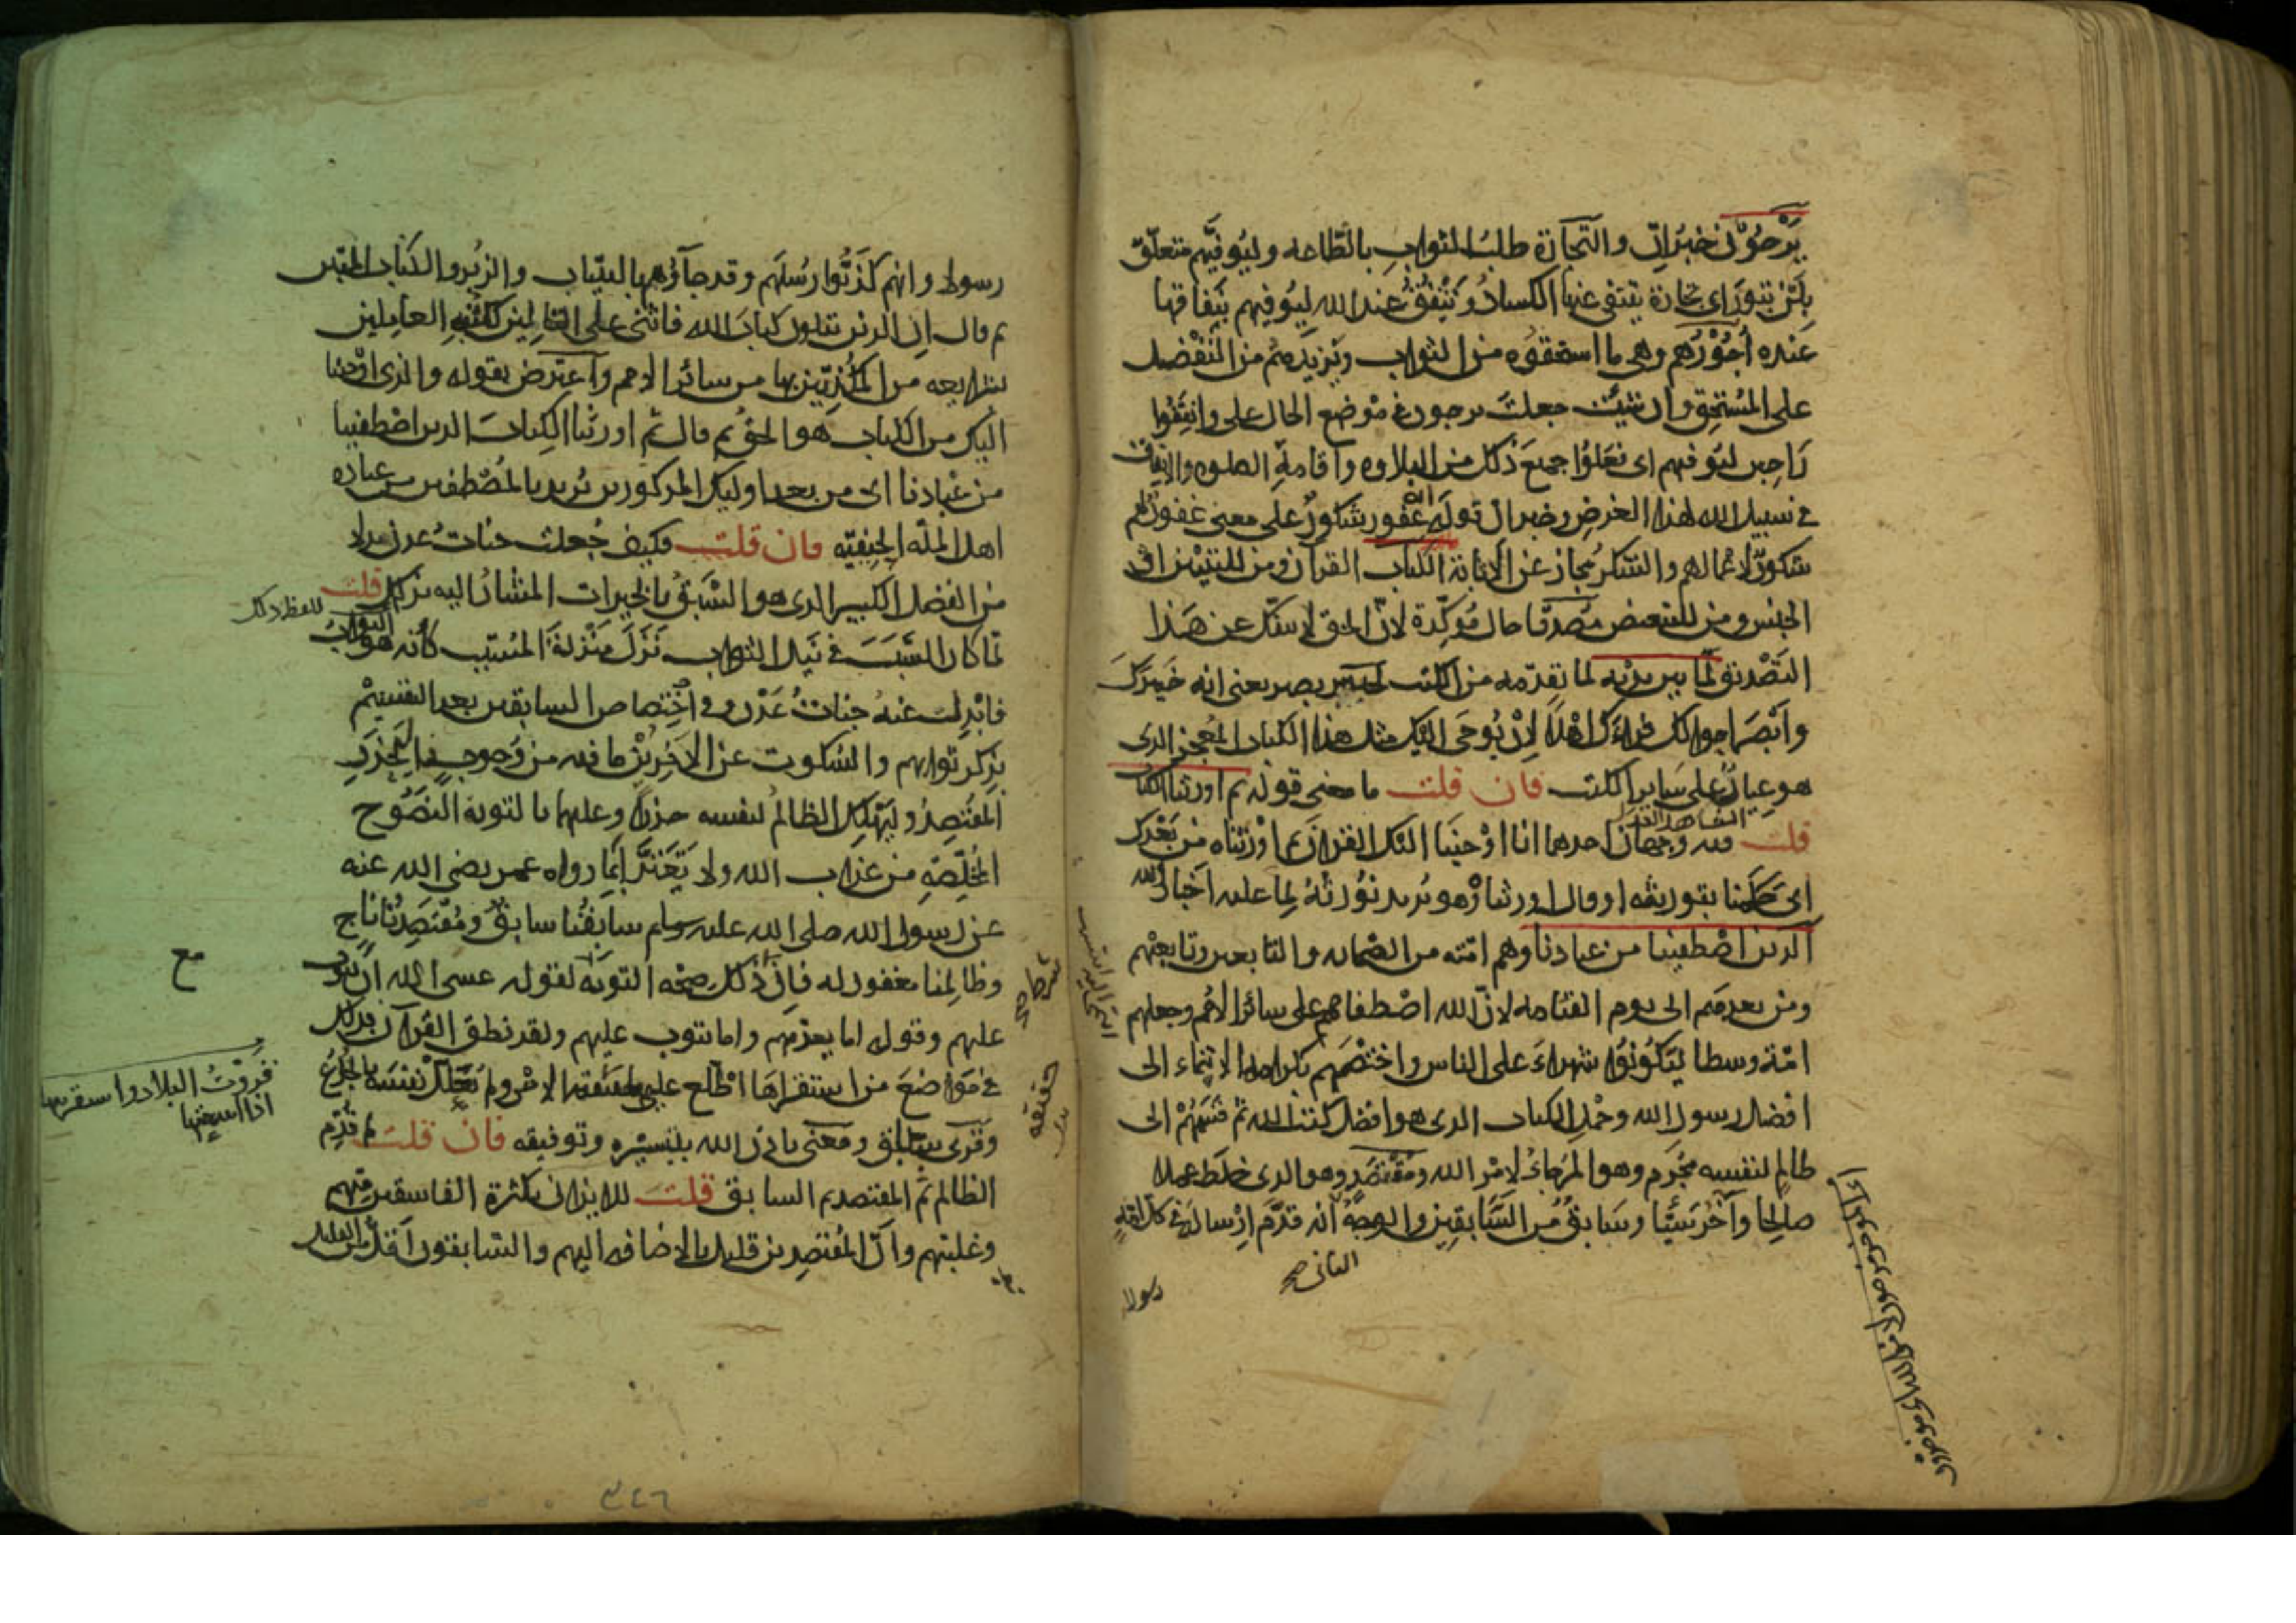 يَرْجُوْن خبرُ اِنّ والتجارة طلبُ الثواب بالطاعه وليوفيهم متعلّق
بلَنْ تبورَ اى تجارة ينتفى عنها الكسادُ وتَنْفُقُ عند الله ليُوَفيهم بنَفاقها
عنده اُجُوْرَهم وهى ما استحقوه من الثواب ويَزِيدَهُم من التَفَضّل
على المُسْتحِق وان شئت جعلتَ يرجون فى موْضع الحال على وانفَقُوا
رَاجين ليُوَفيهم اى فعَلُوْا جميعَ ذلك من التلاوه واقامةِ الصلوه والانفاق
فى سبيل الله لهذا الغرضِ وخبر ان قوله انه غفور شكورٌ على معنى غفورٌ لهم
شكورٌ لاعمالهم والشكر مُجاز عن الاثابة الكتاب القرآن ومن للتبيين او
الجنس ومن للتبعيض مُصَدّقا حال مُؤكِّدة لانّ الحق لا ينفكّ عن هَذا
التَصْديق لمَا بين يديْه لما تقدّمه من الكتب لخبير بصير يعنى انه خَبَرَكَ
وابْصَر احوالك فرآكَ اهْلا لاِنْ يُوحَى اليك مثل هذا الكتاب المُعجز الذى
هو عيارٌ على سَايِر الكتب فان قلت ما معنى قوله ثم اورثنا الكتاب
قلت فيه وجهان احدهما انا اوْحينَا اليْك القرآن ثم اوْرَثناه مِن بَعْدِك
اى حَكَمنا بتوريثه او قال اورثناهُ وهو يُريد نُوْرثهُ لِما عليه اخبارُ الله
الذين اصْطفينا من عبادنا وهم امّته من الصّحابه والتابعين وتابعيْهم
ومن بعدهُم الى يوم القيامه لانّ الله اصْطفاهم على سائر الامُم وجعلهم
امّة وسطا ليَكُونُوْا شهداءَ على الناس واختصّهم بكرامه الانتماء الى
افضل رسول الله وحَمْلِ الكتاب الذى هو افضل كتب الله ثم قَسّمَهُمْ الى
ظالمٍ لنفسه مُجْرِم وهو المُرجأُ لامْر الله ومُقْتَصِدٍ وهو الذى خلَط عملا
صالحا وآخَرَ سَيّئا وسَابِقٍ من السَّابقِين والوجهُ الثانى صح انه قدّم اِرْسالَه فى كل امّةٍ
رسولا
رسولا وانهم كَذّبُوا رُسُلَهم وقد جاؤُهم بالبيّنات والزبُر والكتاب المنير
ثم قال ان الذين يتلون كتابَ الله فاثنى على التالين لكتُبه العامِلين
بشرايعه من المُكَذِّبين بها من سائر الامم واعترض بقوله والذى اوْحينا
اليك من الكتاب هو الحقُ ثم قال ثُمّ اورثنا الكتابَ الذين اصْطفينا
من عبادنا اى من بعد اوليك المذكورين يُريد بالمُصْطفين من عباده
اهل المِلّه الحنيفيّه فان قلت فكيف جُعلت جناتُ عدن بدلا
من الفضل الكبير الذى هو السَّبْقُ بالخيرات المشارُ اليه بذلك قلت
بلفظ ذلك
لمّا كان السَّبَبَ فى نَيل الثواب نُزّلَ مَنْزلة المُسَبّب كأنه هو الثوابُ
فابْدِلت عنهُ جناتُ عَدْن وفى اخْتِصاص السابقين بعد التقسيم
بذكر ثوابهم والسُكوت عن الآخَرِيْن ما فيه من وُجوب الحذر فليحذَر
المُقْتصِدُ وليَهْلِك الظالمُ لنفسه حذرًا وعليهما بالتوبة النَّصُوح
المُخلِّصَةِ من عذاب الله ولا يَغْتَرَّا بمَا رواه عمر رضى الله عنه
عن رسول الله صلى الله عليه وسلم سابِقُنا سابقٌ ومُقْتَصِدُنا ناج
وظالِمُنا مغفور له فان شرط ذلك صحّه التوبَه لقوله عسى الله ان يتوبَ
عليهم وقوله اما يعذبهم واما يتوب عليهم ولقد نطق القرآن بذلك
فى مَوَاضعَ من استقراهَا اطّلع على حقيقه الامْر ولم يُعَلِّلْ نفسَه بالخُدَعِ
وقُرِى سَبّاق ومعنى باذن الله بتيسيْره وتوفيقه فان قلت لم قُدّم
الظالم ثم المقتصد ثم السابق قلت للايذان بكثرة الفاسقين منهم
وغلبتهم وانّ المُقتصِدين قليل بالاضافه اليهم والسّابقون اقلُّ من القليل
مح
قروتُ البلاد واستقريتها
اذا تتبعتها
٣٤٦